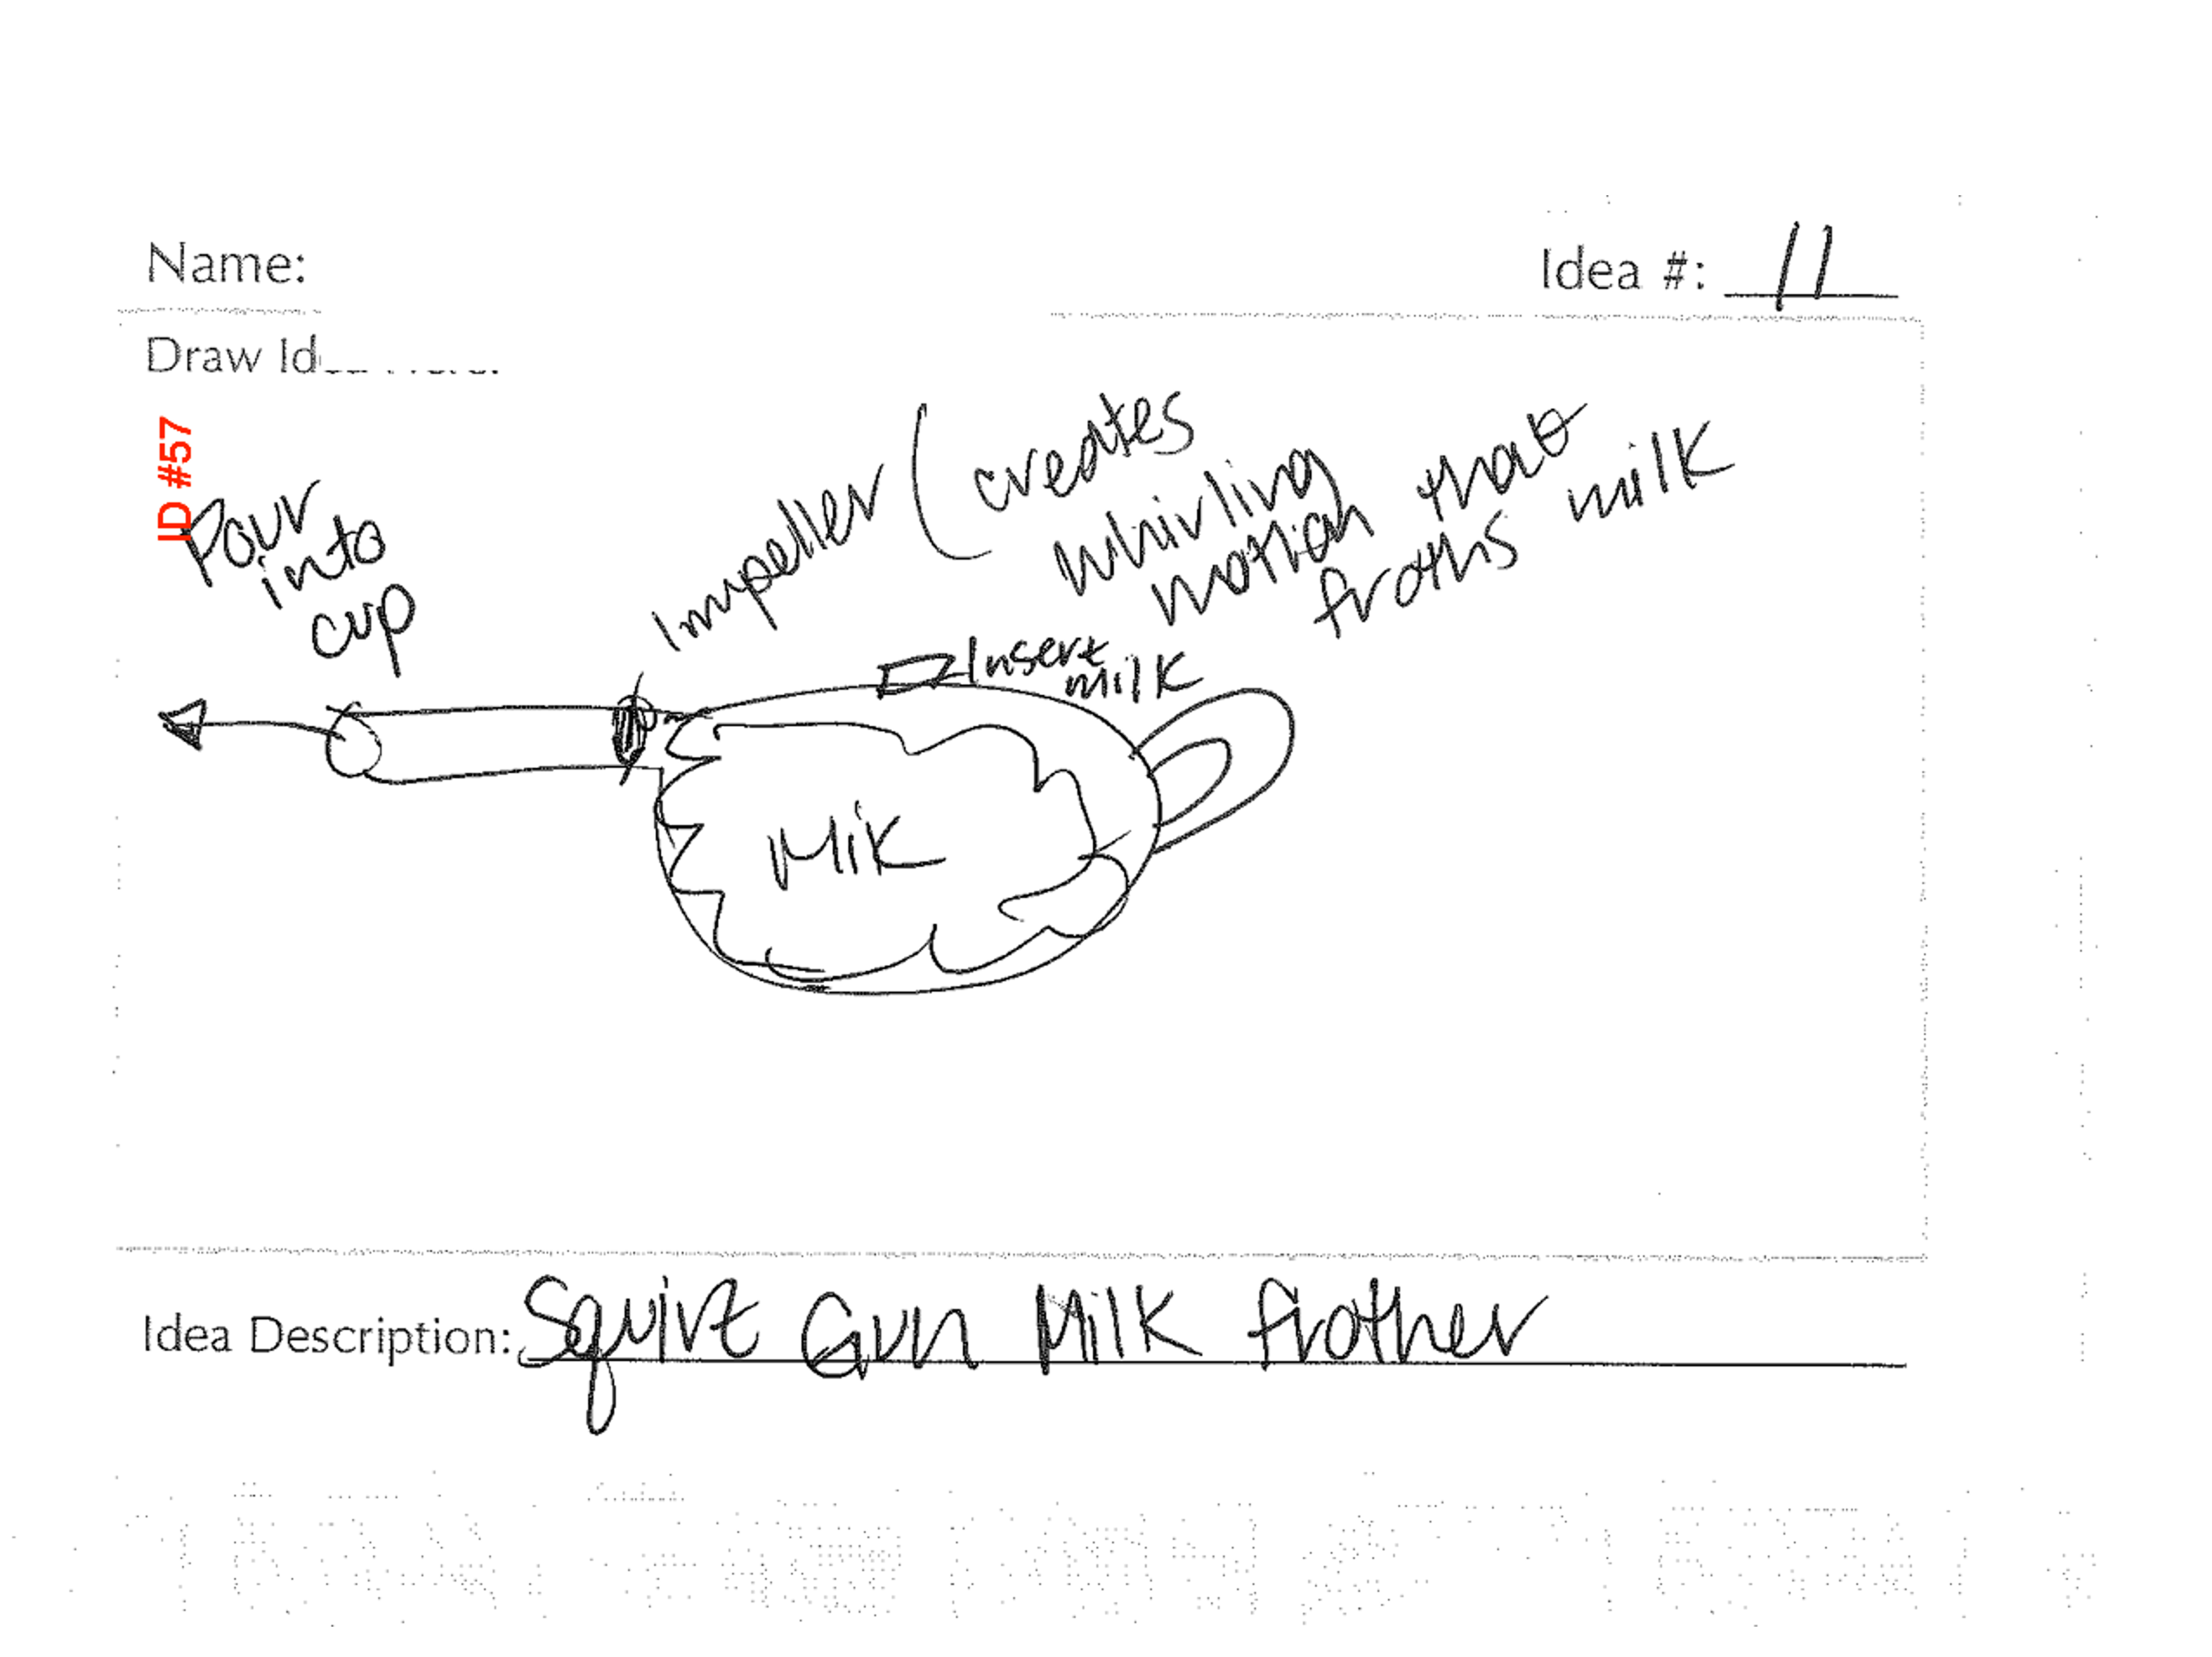 Name:
Idea #: 11
Draw Id
ID #57
Pour
into
cup
Impeller (creates
whirling
motion that
froths milk
Insert
milk
Milk
Idea Description: Squirt Gun Milk frother